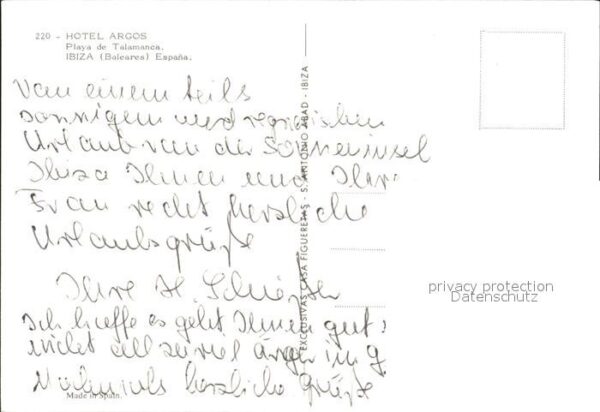 220 - HOTEL ARGOS
Playa de Talamanca.
IBIZA (Baleares) España.
Von einem teils
sonnigem und regnerischen
Urlaub von der Sonneninsel
Ibiza Ihnen und Ihrer
Frau recht herzliche
Urlaubsgrüße
Ihre H.
Ich hoffe es geht Ihnen gut
nicht all zu viel Ärger im
Nochmals herzliche Grüße
Made in Spain.
EXCLUSIVAS CASA FIGUERETAS - S. ANTONIO ABAD - IBIZA
privacy protection
Datenschutz